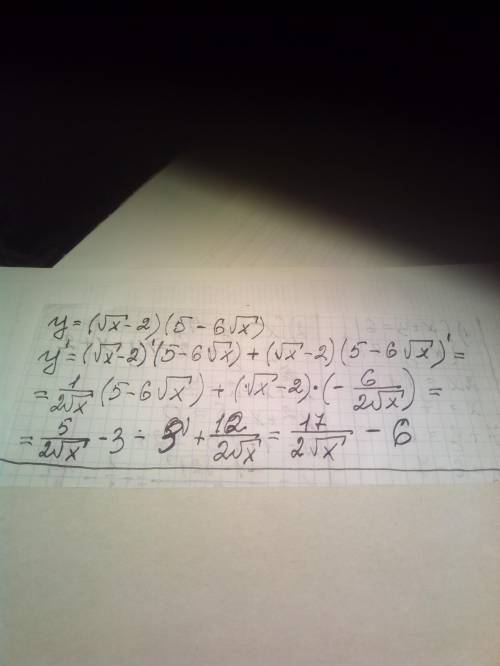 y = (√x - 2)(5 - 6√x)
y' = (√x - 2)'(5 - 6√x) + (√x - 2)(5 - 6√x)' =
= 1/(2√x) (5 - 6√x) + (√x - 2)·(- 6/(2√x)) =
= 5/(2√x) - 3 - 3 + 12/(2√x) = 17/(2√x) - 6